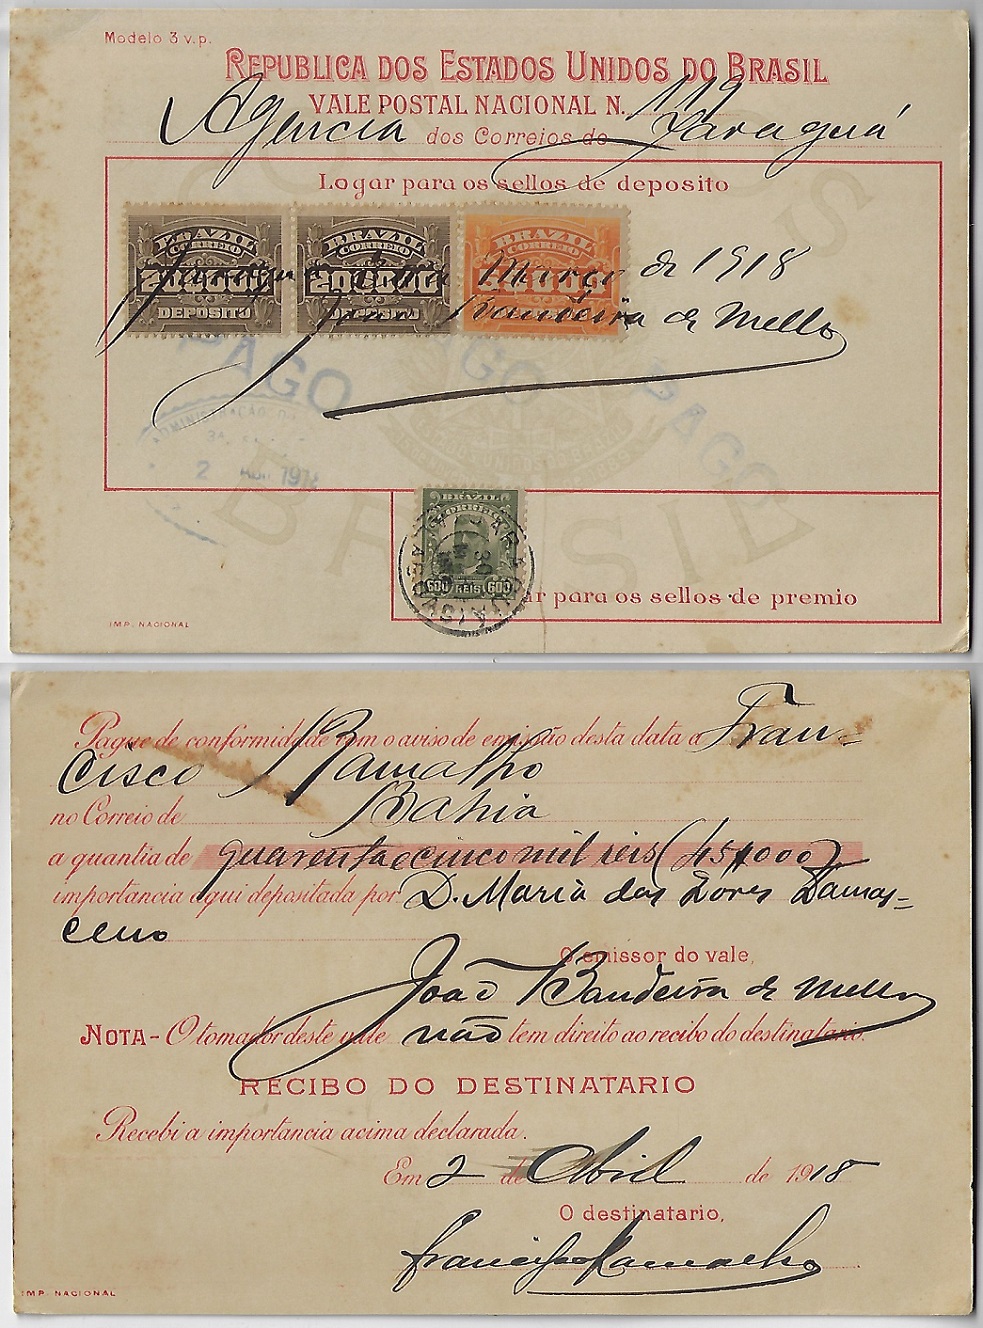 Modelo 3 v.p.
REPUBLICA DOS ESTADOS UNIDOS DO BRASIL
VALE POSTAL NACIONAL N. 119
Agencia dos Correios de Jaraguá
Logar para os sellos de deposito
BRAZIL BRAZIL BRAZIL
CORREIO CORREIO CORREIO
20.000 20.000
DEPOSITO DEPOSITO
Jaraguá Março de 1918
João Bandeira de Mello
PAGO PAGO PAGO
ADMINISTRAÇÃO
2 ABR 191
CORREIOS
BRASIL
BRAZIL
CORREIO
600 REIS 600
JARAGUÁ
30
ar para os sellos de premio
IMP. NACIONAL
Pague de conformidade com o aviso de emissão desta data a Fran-
cisco Ramalho
no Correio de Bahia
a quantia de quarenta e cinco mil reis (45$000)
importancia aqui depositada por D. Maria das Dores Damas-
ceno
O emissor do vale,
João Bandeira de Mello
NOTA - O tomador deste vale não tem direito ao recibo do destinatario.
RECIBO DO DESTINATARIO
Recebi a importancia acima declarada.
Em 2 de Abril de 1918
O destinatario,
Francisco Ramalho
IMP. NACIONAL